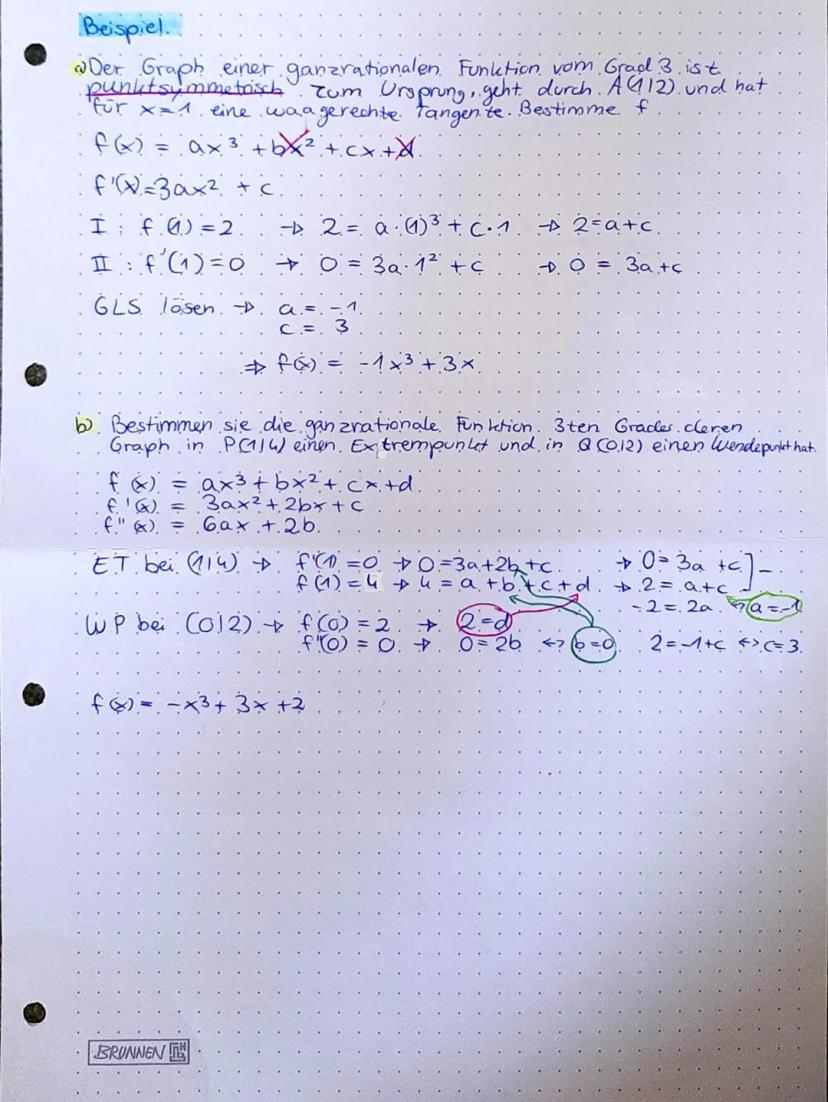 Beispiel.
a) Der Graph einer ganzrationalen Funktion vom Grad 3 ist
punktsymmetrisch zum Ursprung, geht durch A(1|2) und hat
für x=1 eine waagerechte Tangente. Bestimme f
f(x) = ax³ + bx² + cx + d
f'(x) = 3ax² + c
I : f(1) = 2 → 2 = a·(1)³ + c·1 → 2=a+c
II : f'(1) = 0 → 0 = 3a·1² + c → 0 = 3a+c
GLS lösen → a = -1
c = 3
⇒ f(x) = -1x³ + 3x
b) Bestimmen sie die ganzrationale Funktion 3ten Grades deren
Graph in P(1|4) einen Extrempunkt und in Q(0|2) einen Wendepunkt hat.
f(x) = ax³ + bx² + cx + d
f'(x) = 3ax² + 2bx + c
f''(x) = 6ax + 2b
ET bei (1|4) → f'(1) = 0 → 0=3a+2b+c → 0= 3a +c ] -
f(1) = 4 → 4 = a +b +c +d → 2 = a+c
-2 = 2a ↔ a=-1
WP bei (0|2) → f(0) = 2 → 2=d
f''(0) = 0 → 0 = 2b ↔ b=0 2=-1+c ↔ c=3
f(x) = -x³ + 3x +2
BRUNNEN